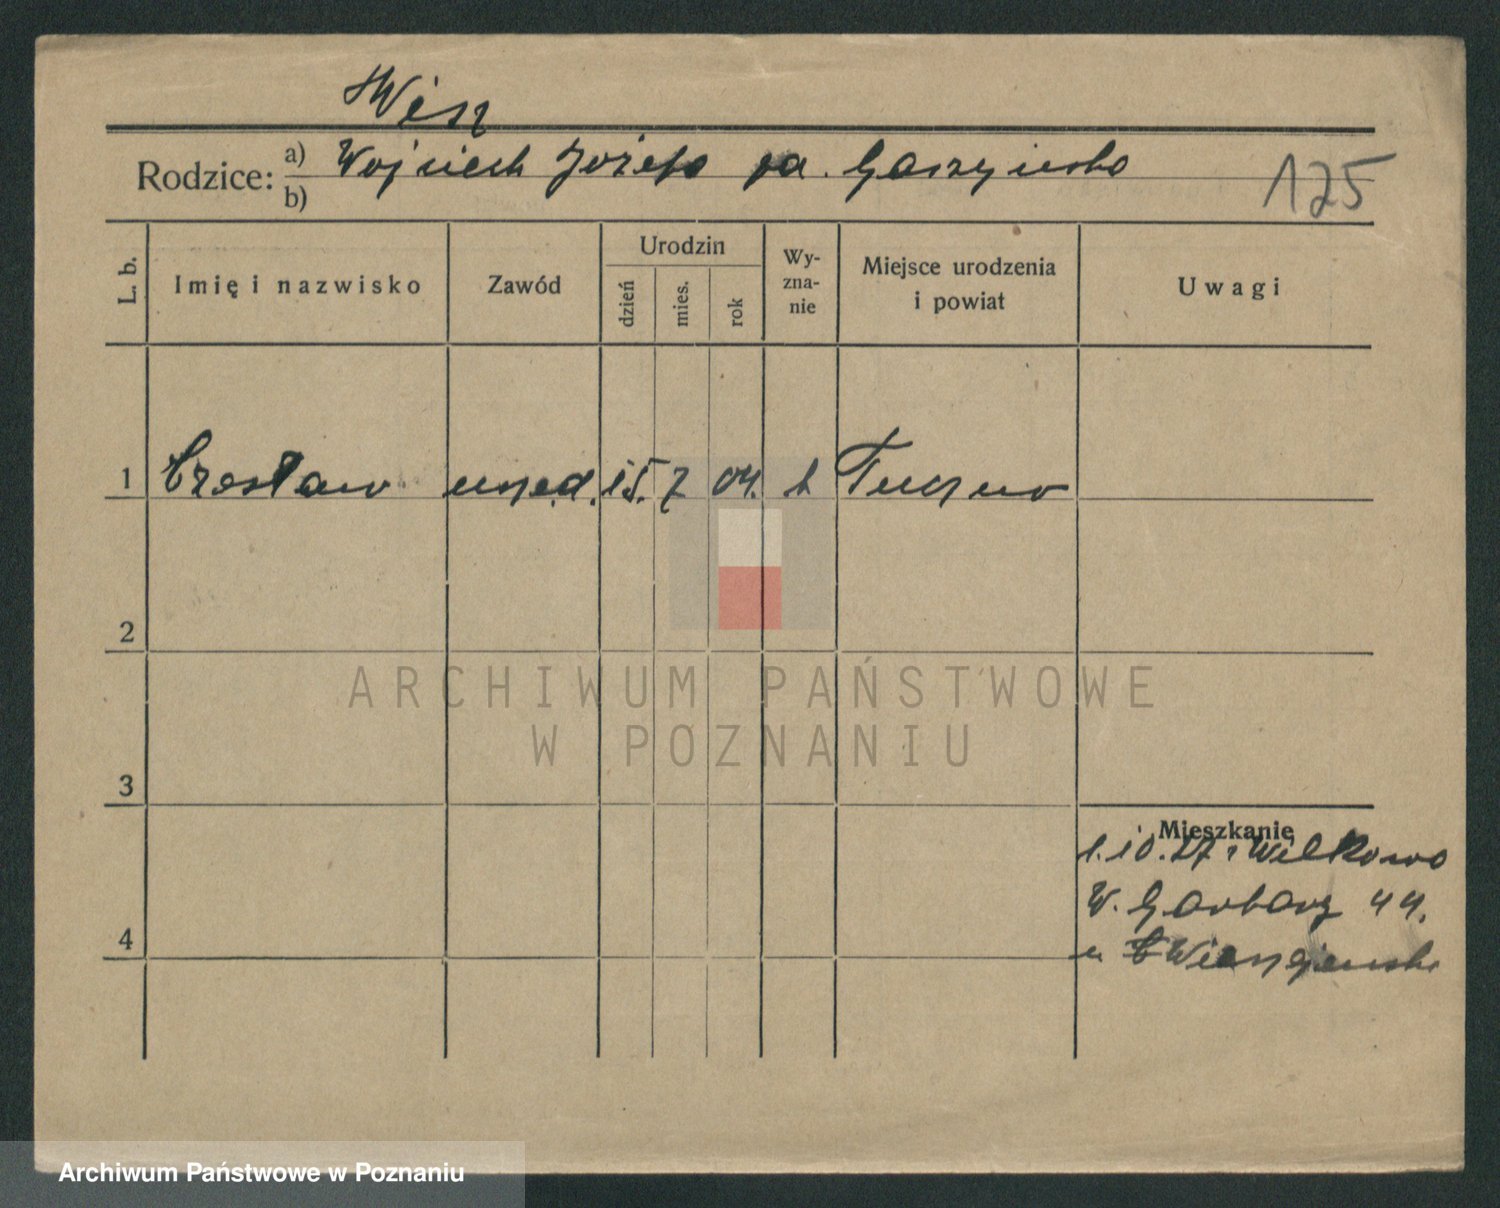 Wisz
Rodzice: a) Wojciech Józefa za. Gaszyńska
b)
175
L. b.
Imię i nazwisko
Zawód
Urodzin
dzień
mies.
rok
Wy-
zna-
nie
Miejsce urodzenia
i powiat
Uwagi
1 Czesław urzęd. 15. 7 04. k Tuczno
2
3
4
Mieszkanie
1.10.27 z Wilkowo
W. Garbary 44.
u
ARCHIWUM PAŃSTWOWE
W POZNANIU
Archiwum Państwowe w Poznaniu